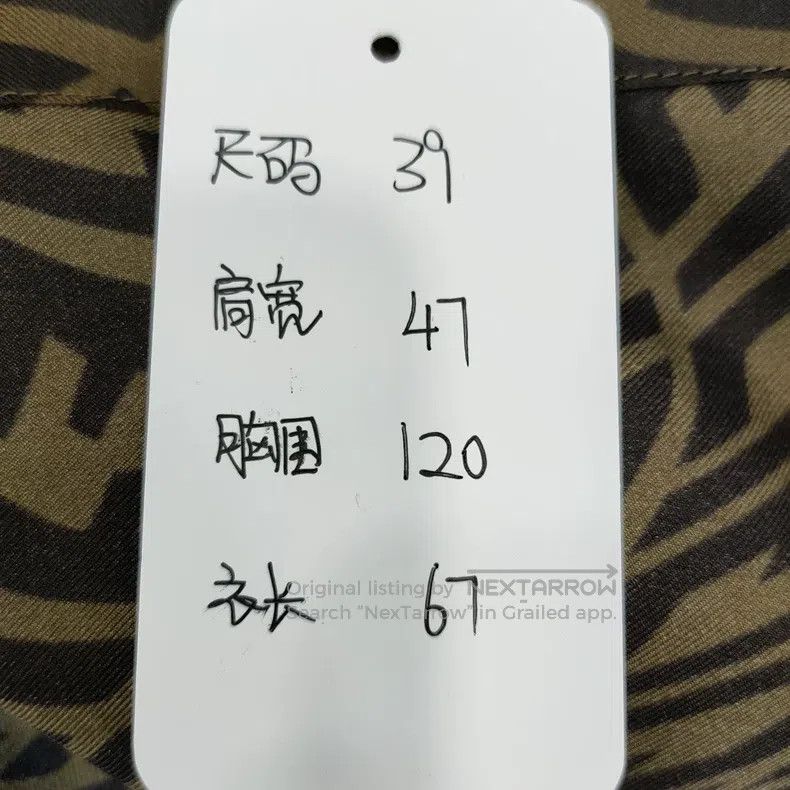 尺码 39
肩宽 47
胸围 120
衣长 67
Original listing by NEXTARROW
Search "NexTarrow" in Grailed app.